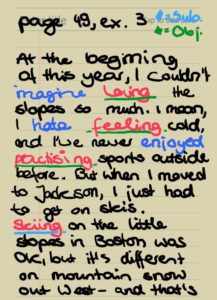 page 49, ex. 3 = Sub.
= Obj.
At the begining
of this year, I couldn't
imagine loving the
slopes so much. I mean,
I hate feeling cold,
and I've never enjoyed
practising sports outside
before. But when I moved
to Jackson, I just had
to get on skis.
Skiing on the little
slopes in Boston was
OK, but it's different
on mountain snow
out West - and that's